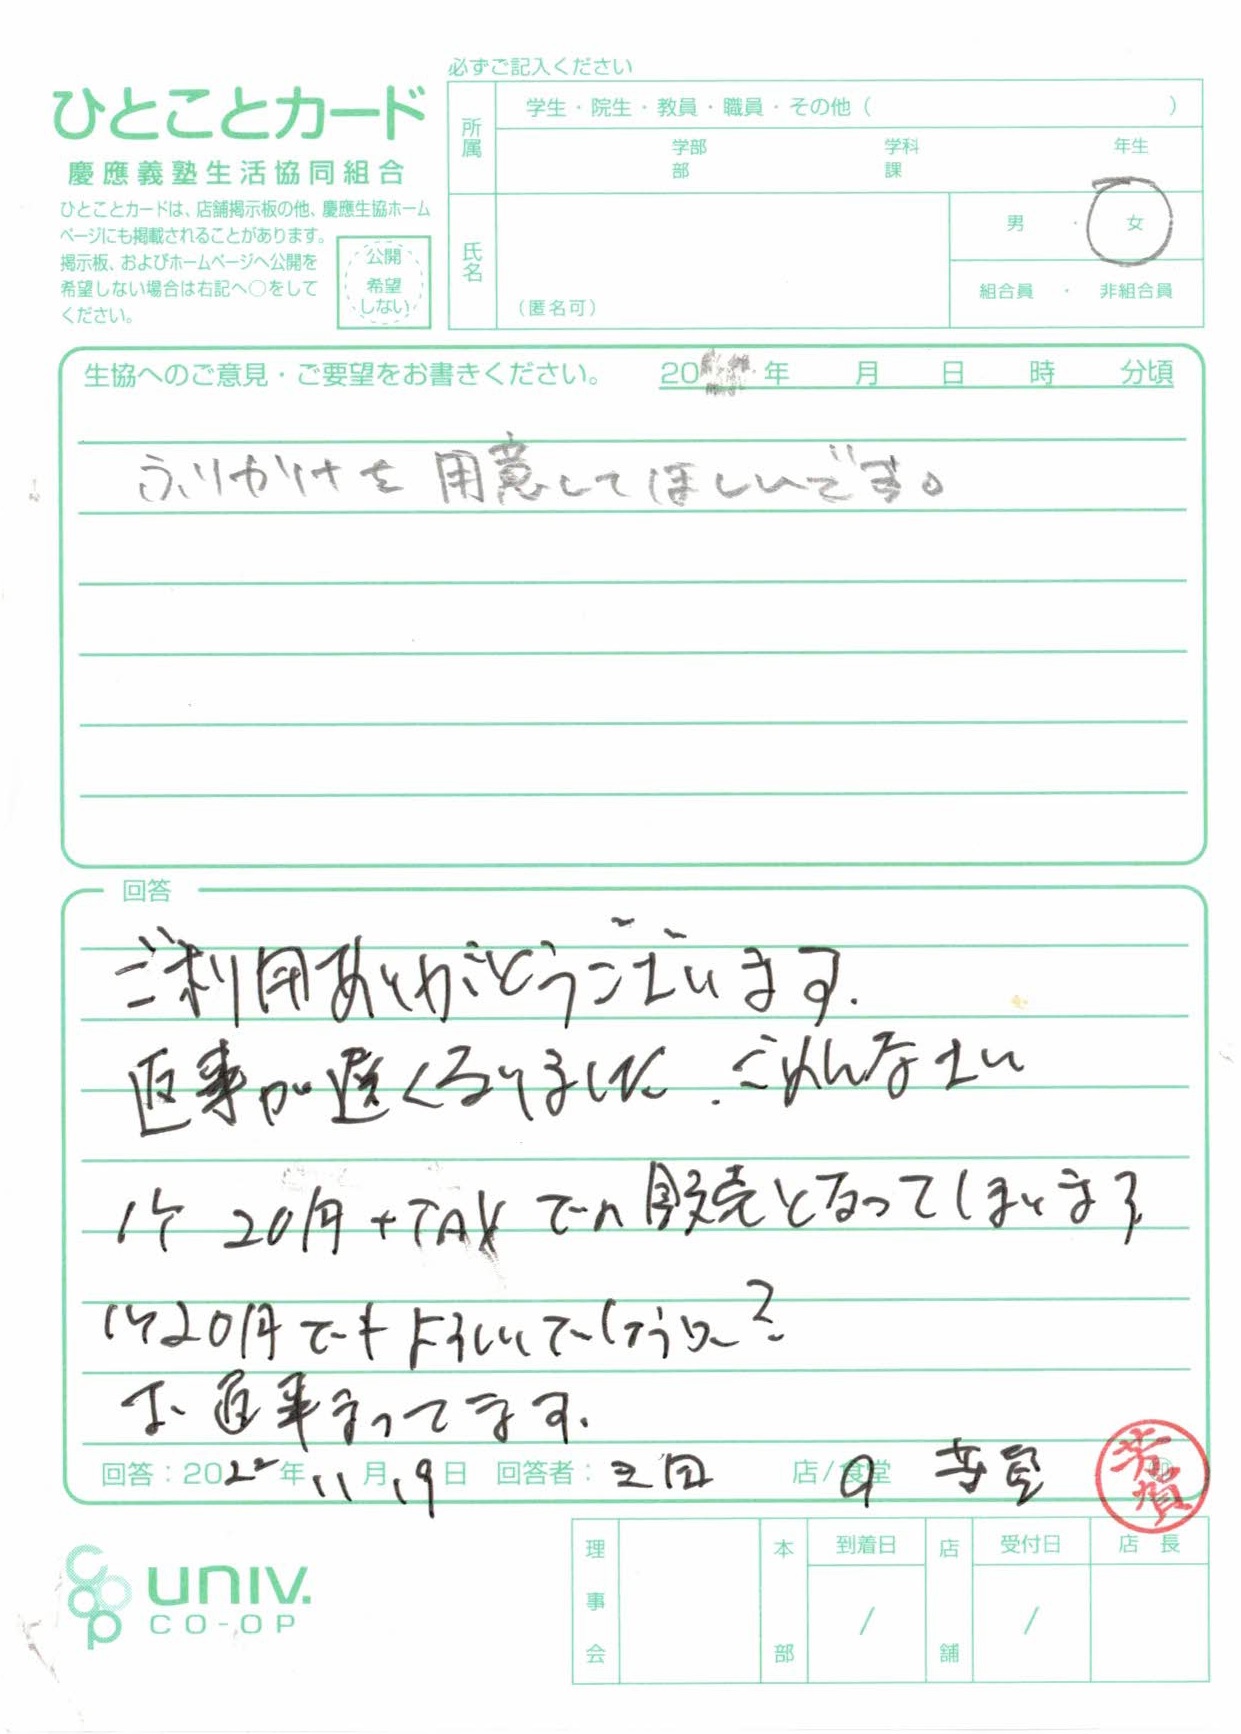 必ずご記入ください
ひとことカード
慶應義塾生活協同組合
ひとことカードは、店舗掲示板の他、慶應生協ホーム
ページにも掲載されることがあります。
掲示板、およびホームページへ公開を
希望しない場合は右記へ○をして
ください。
公開
希望
しない
所属
学生・院生・教員・職員・その他（　　　）
学部 学科 年生
部 課
氏名
（匿名可）
男・女
組合員・非組合員
生協へのご意見・ご要望をお書きください。 20 年 月 日 時 分頃
ふりかけを用意してほしいです。
回答
ご利用ありがとうございます.
返事が遅くなりました.ごめんなさい
1ケ 20円+TAXでの販売となってしまいます
1ケ20円でもよろしいでしょうか?
お返事まってます.
回答：2022年11月19日 回答者：三田 店/食堂 芳賀
芳賀
univ.
CO-OP
理事会
本部
到着日
/
店舗
受付日
/
店長